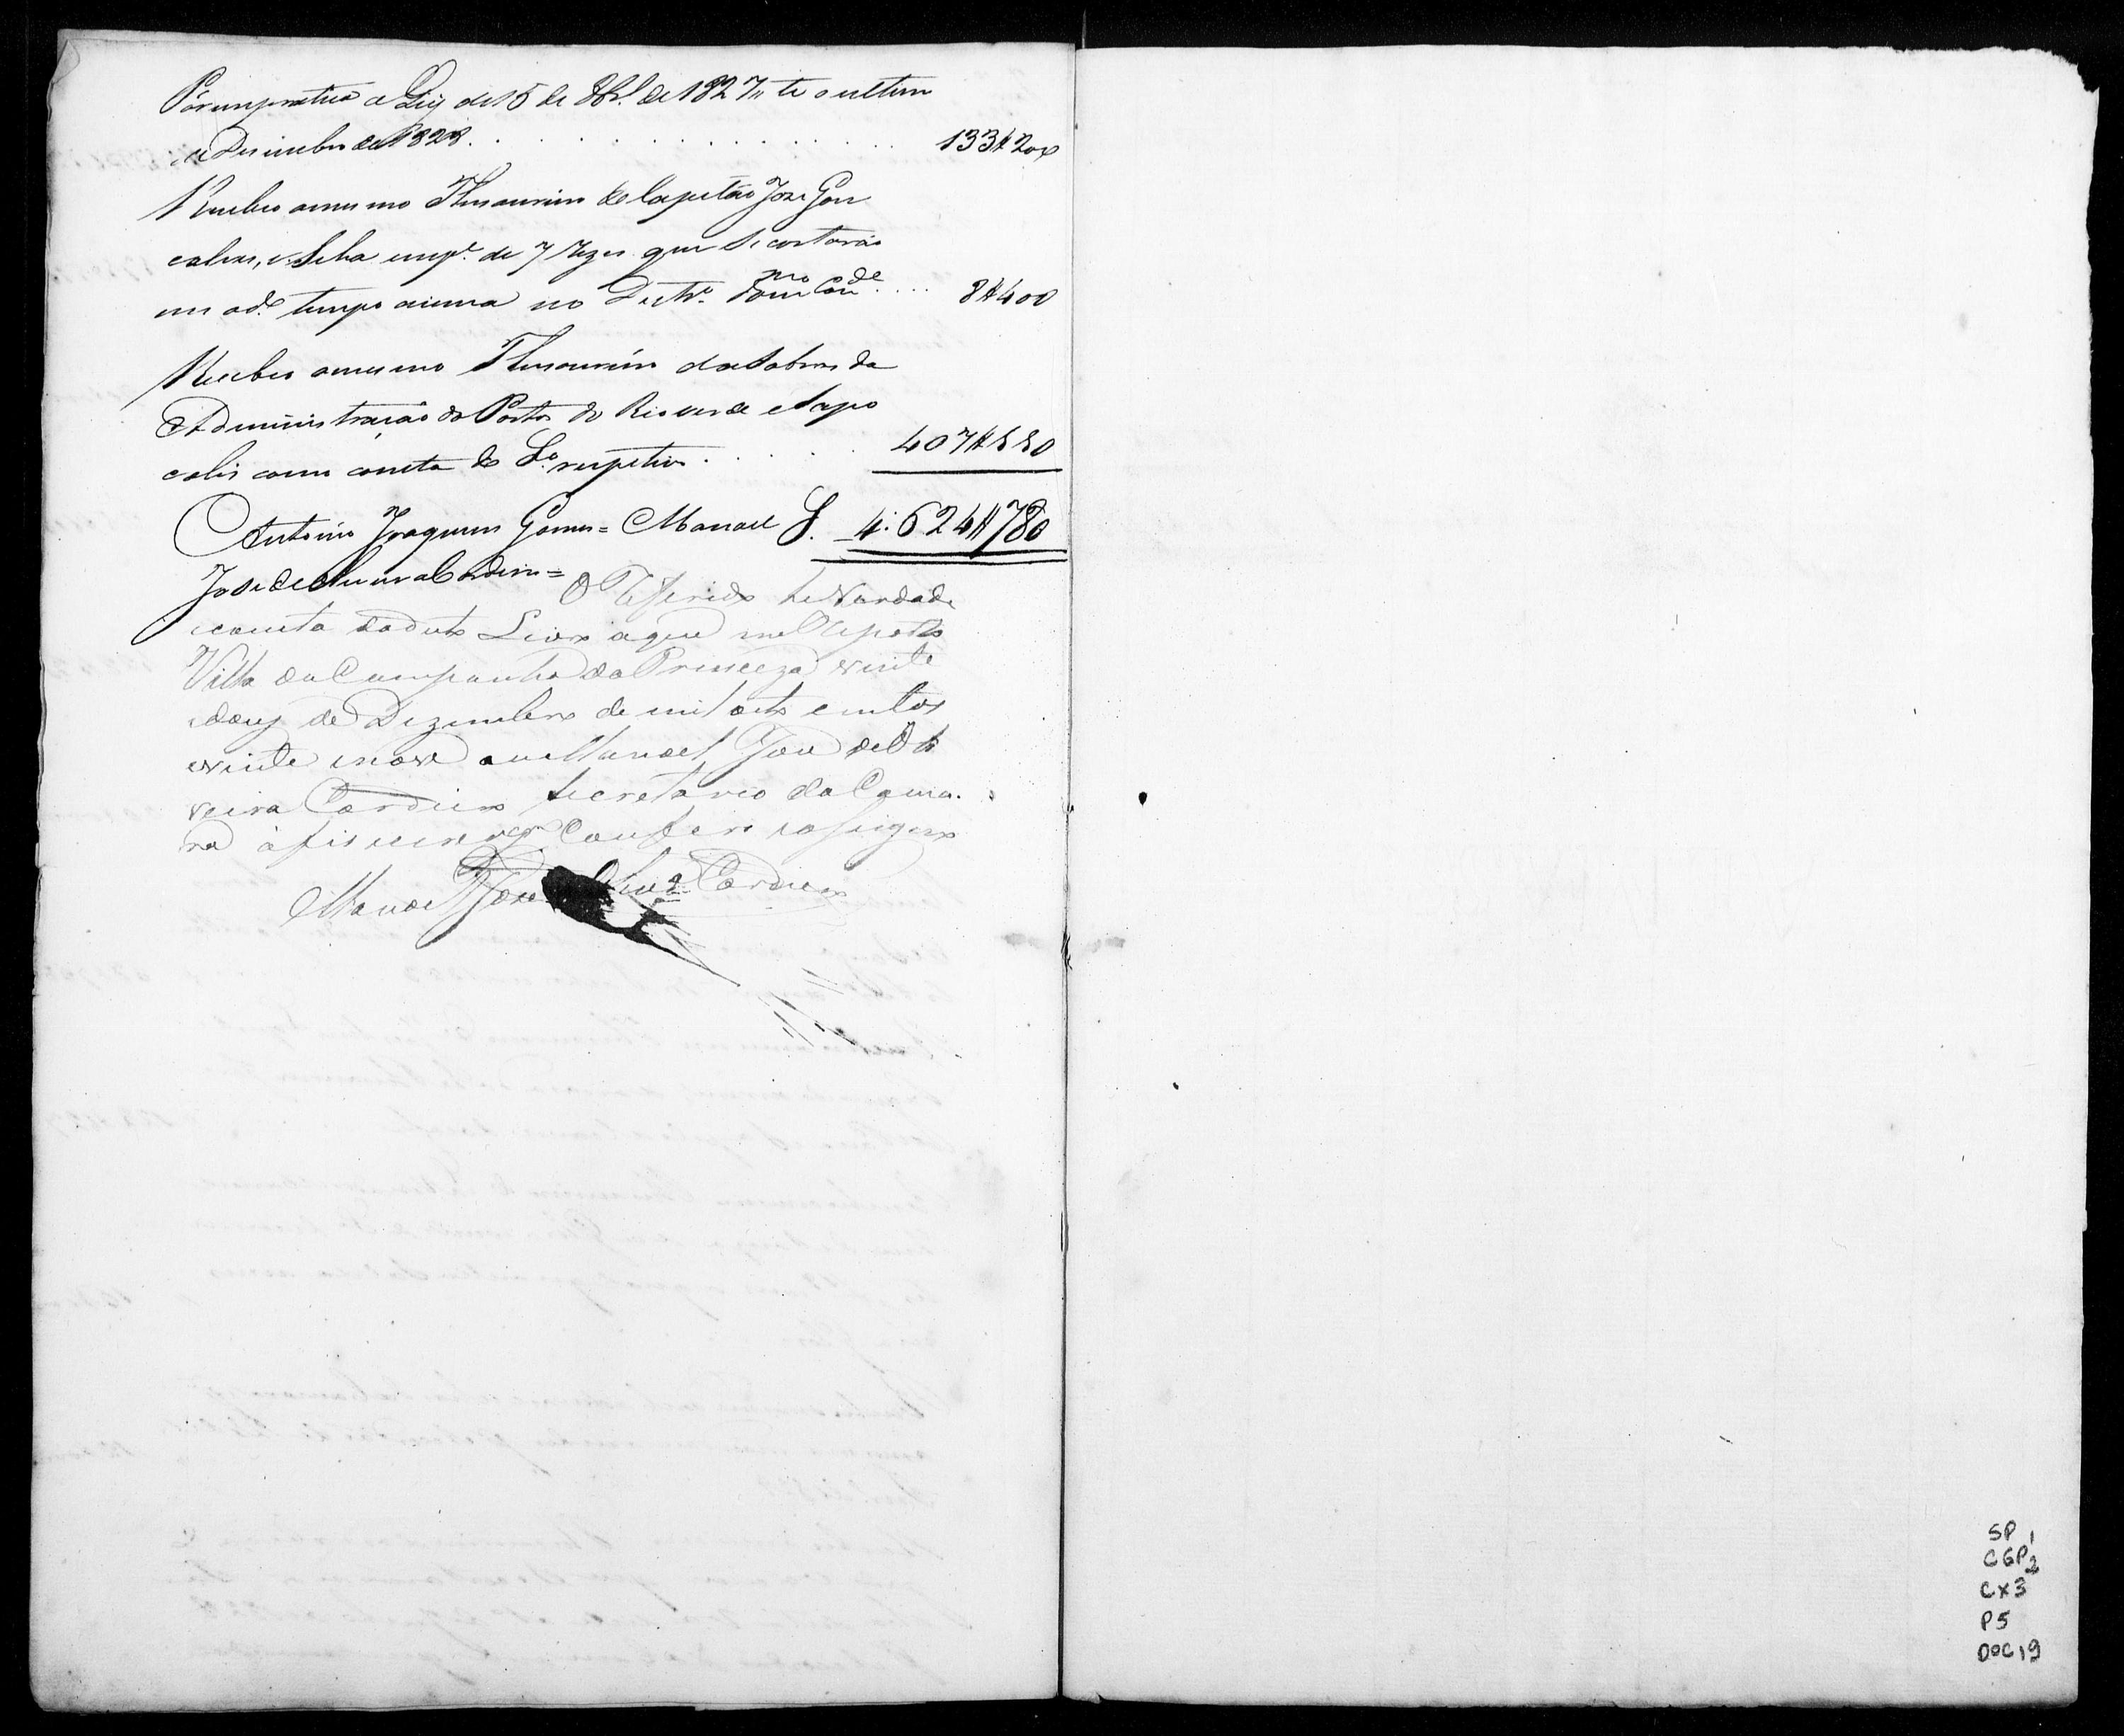 Pôr em pratica a Ley de 15 de 8br.º de 1827,, te o ultimo
de Dezembro de 1828 . . . . . . . . . . . . . 133$200
Recebeo o mesmo Thesoureiro do Capitão Joze Gon
calves, e Silva imp.e de 7 rezes que se cortarão
em o d.º tempo acima no Destr.º do mmo Con.de . . . . 8$400
Recebeo o mesmo Thesoureiro das sobras da
Administração do Porto do Rio verde e Sapo
cahi como consta do L.º respetivo . . . . . 407$550
Antonio Joaquim Gomes = Manoel S. 4:624$780
José de Oliveira Cordeiro =
O Referido he Verdade
e consta do dito Livro a que me Reporto
Villa da Campanha da Princeza vinte
e dous de Dezembro de mil oito centos
e vinte e nove eu Manoel Joze de Oli
veira Cordeiro Secretario da Cama.
ra a fis escrever Confery e asigno
Manoel Joze Olivr.a Cordeiro
SP 1
CGP 2
CX3
P5
DOC 19